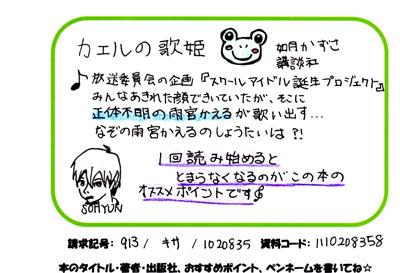 カエルの歌姫
如月かずさ
講談社
♪放送委員会の企画『スクールアイドル誕生プロジェクト』
みんなあきれた顔できいていたが、そこに
正体不明の雨宮かえるが歌い出す…
なぞの雨宮かえるのしょうたいは?!
1回読み始めると
とまらなくなるのがこの本の
オススメポイントです
SOHYUN
請求記号: 913/ キサ /1020835 資料コード: 1110208358
本のタイトル・著者・出版社、おすすめポイント、ペンネームを書いてね☆